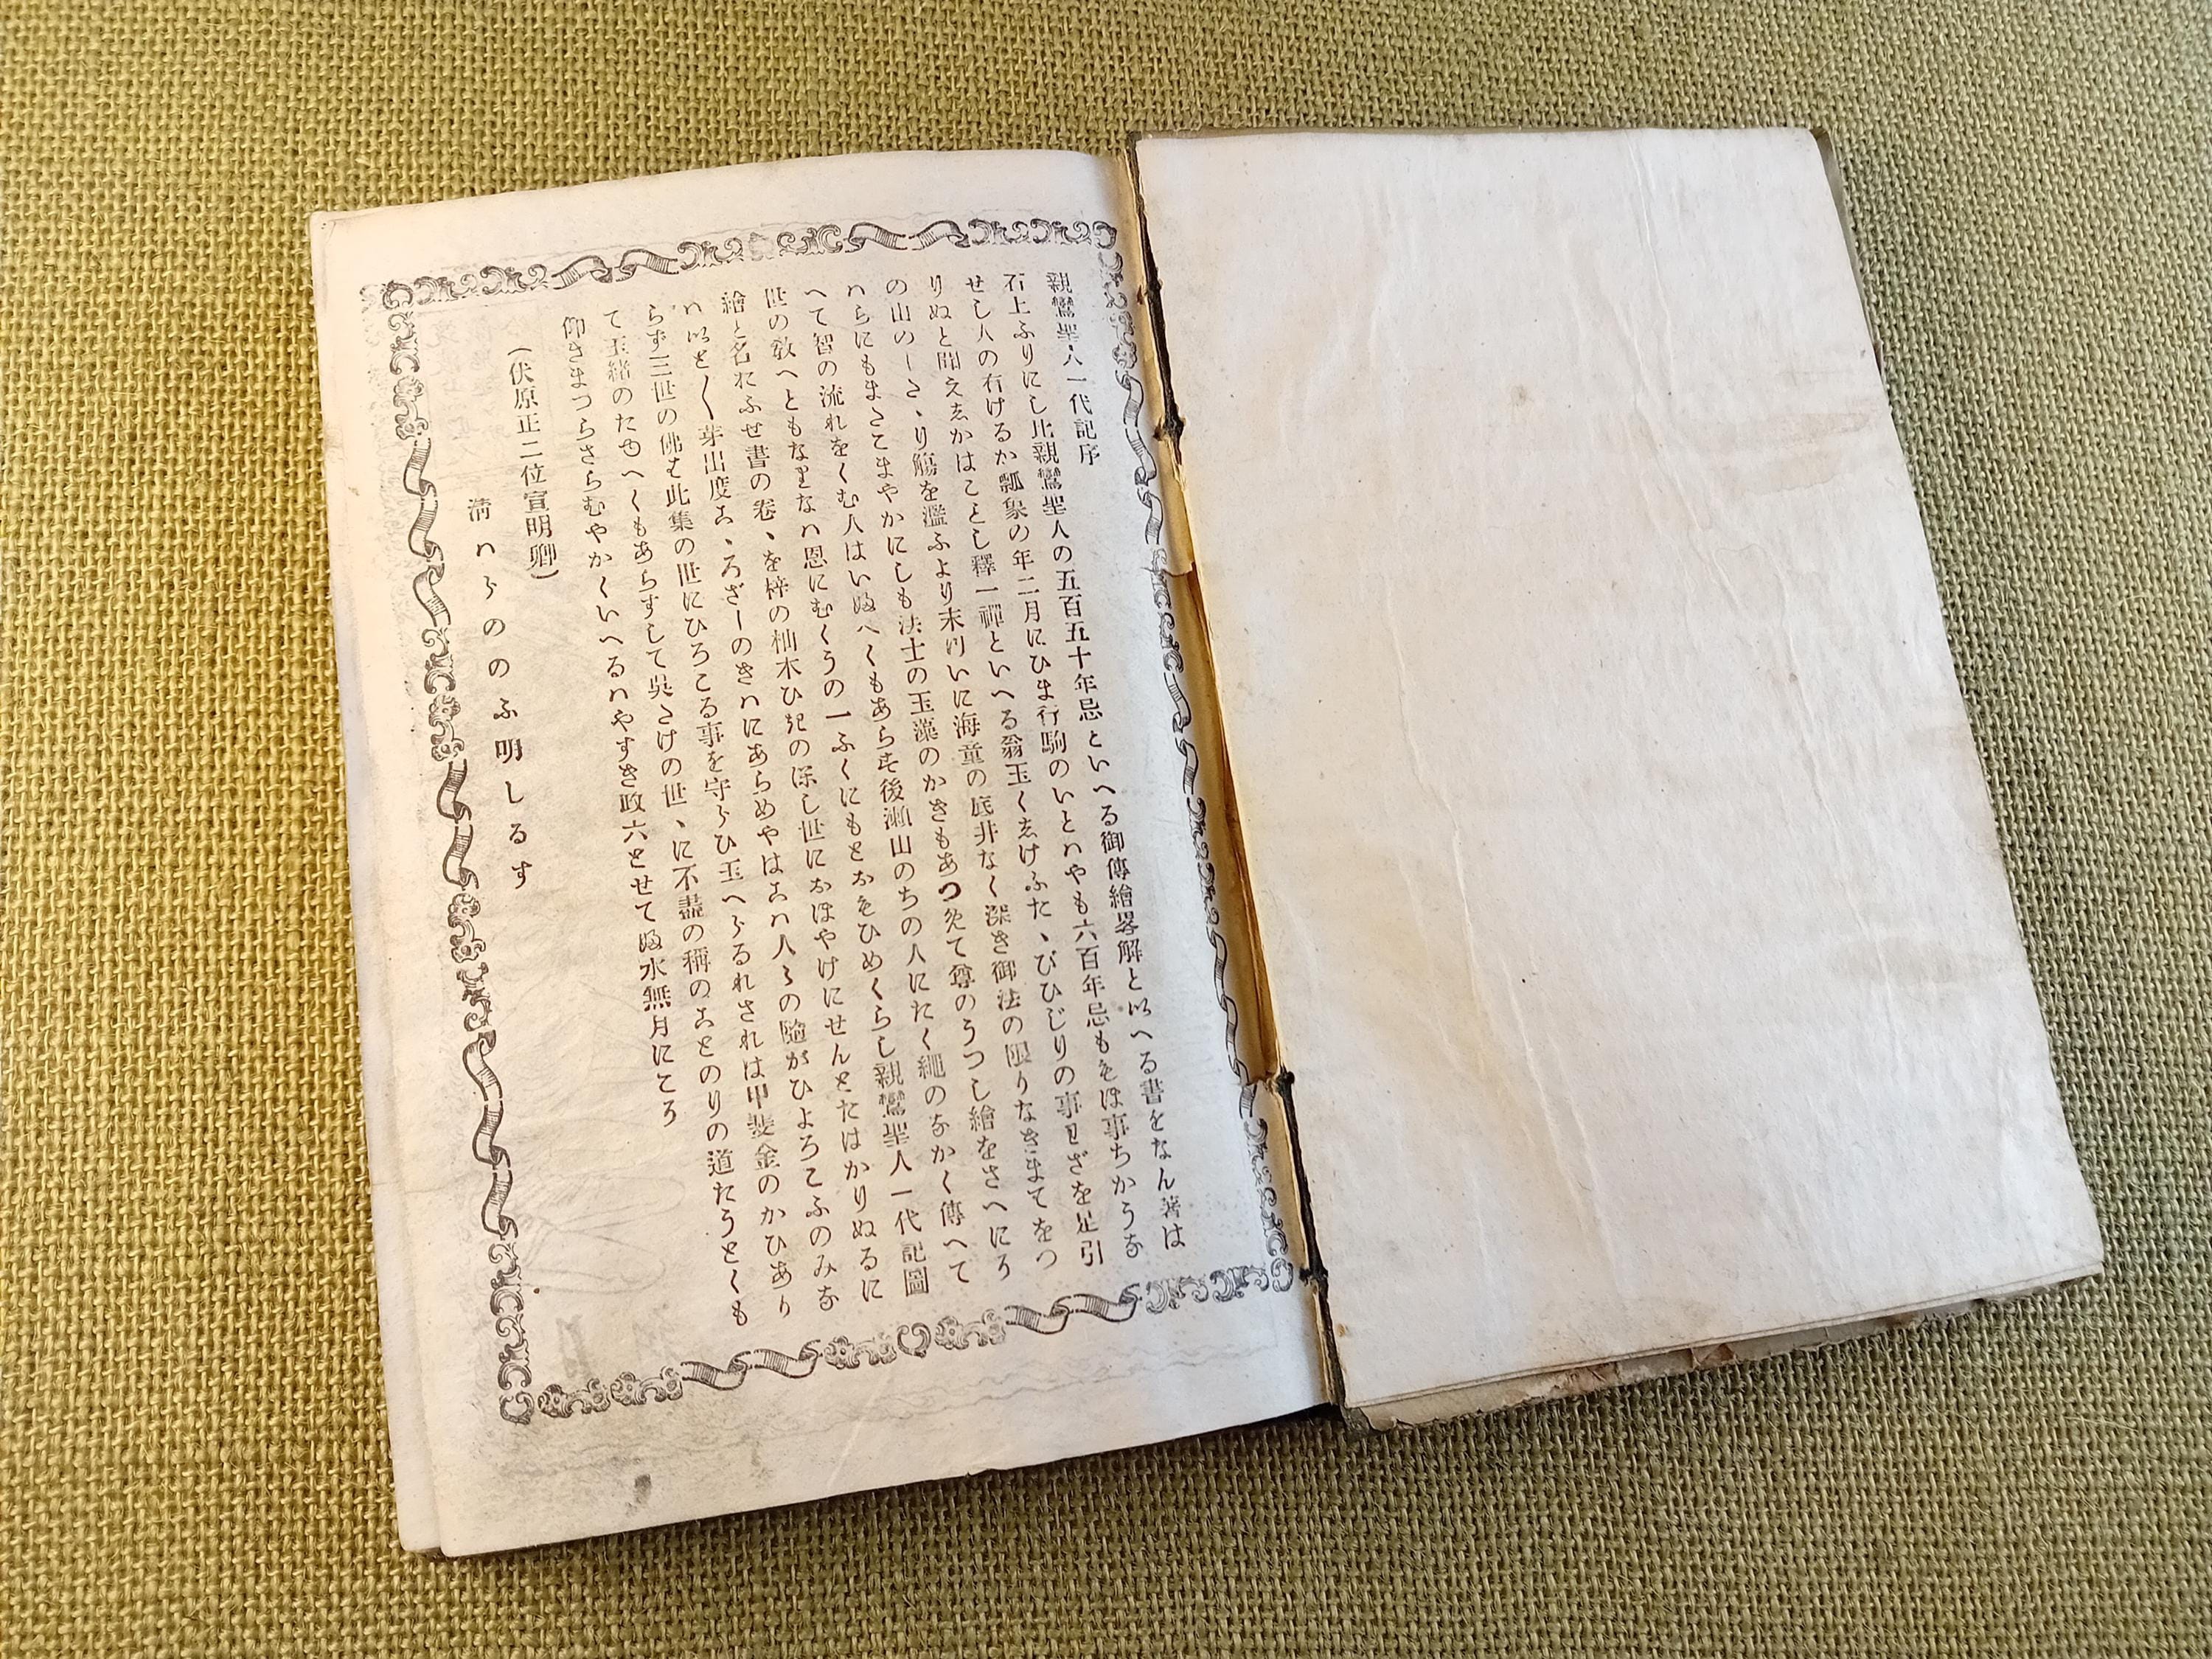 親鸞聖人一代記序
石上ふりにし比親鸞聖人の五百五十年忌といへる御傳繪畧解と以へる書をなん著は
せし人の有けるか瓢象の年二月にひま行駒のいとハやも六百年忌もをほ事ちかうな
りぬと聞えゑかはことし釋一禪といへる翁玉くゑけふたゝびひじりの事わざを足引
の山のーさゝり觴を濫ふより末川いに海童の底井なく深き御法の限りなきまてをつ
ハらにもまさこまやかにしも法士の玉藻のかきもあつめて尊のうつし繪をさへにう
へて智の流れをくむ人はいぬへくもあらす後瀬山のちの人にたく繩のなかく傳へて
世の敎へともなりなハ恩にむくうの一ふくにもとおもひめくらし親鸞聖人一代記圖
繪と名におふせ書の卷ゝを梓の杣木ひきの深し世におほやけにせんとたはかりぬるに
ハ以と〱芽出度こゝろざーのきハにあらめやはこハ人〻の隨がひよろこふのみな
らず三世の佛も此集の世にひろこる事を守らひ玉へらるれされは甲斐金のかひあり
て玉緒のたゆへくもあらすして呉さけの世ゝに不盡の稱のことのりの道たうとくも
仰きまつらさらむやかくいへるハやすき政六とせて ぬ水無月にころ
(伏原正二位宣明卿)
淸ハらののふ明しるす